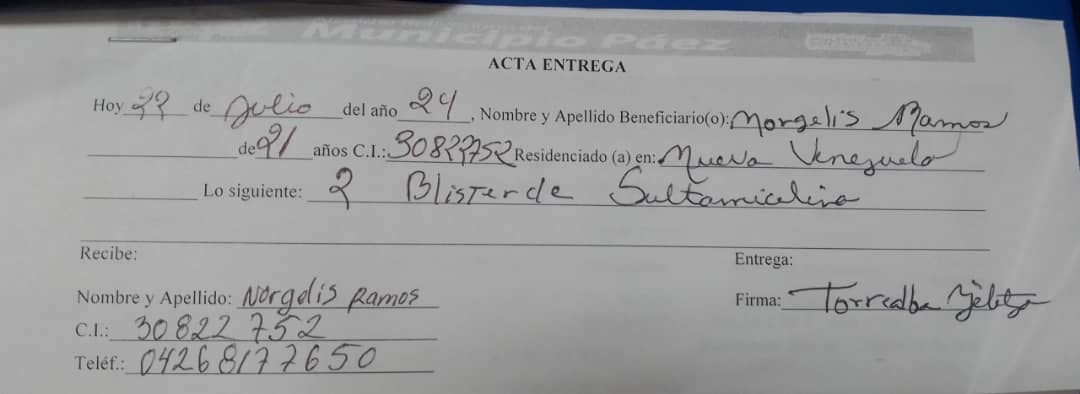 Municipio Páez
ACTA ENTREGA
Hoy 22 de Julio del año 24, Nombre y Apellido Beneficiario(o): Norgelis Ramos
de 21 años C.I.: 30822752 Residenciado (a) en: Nueva Venezuela
Lo siguiente: 2 Blister de Sultamicilina
Recibe:
Entrega:
Nombre y Apellido: Norgelis Ramos
Firma: Torrealba
C.I.: 30822 752
Teléf.: 04268177650